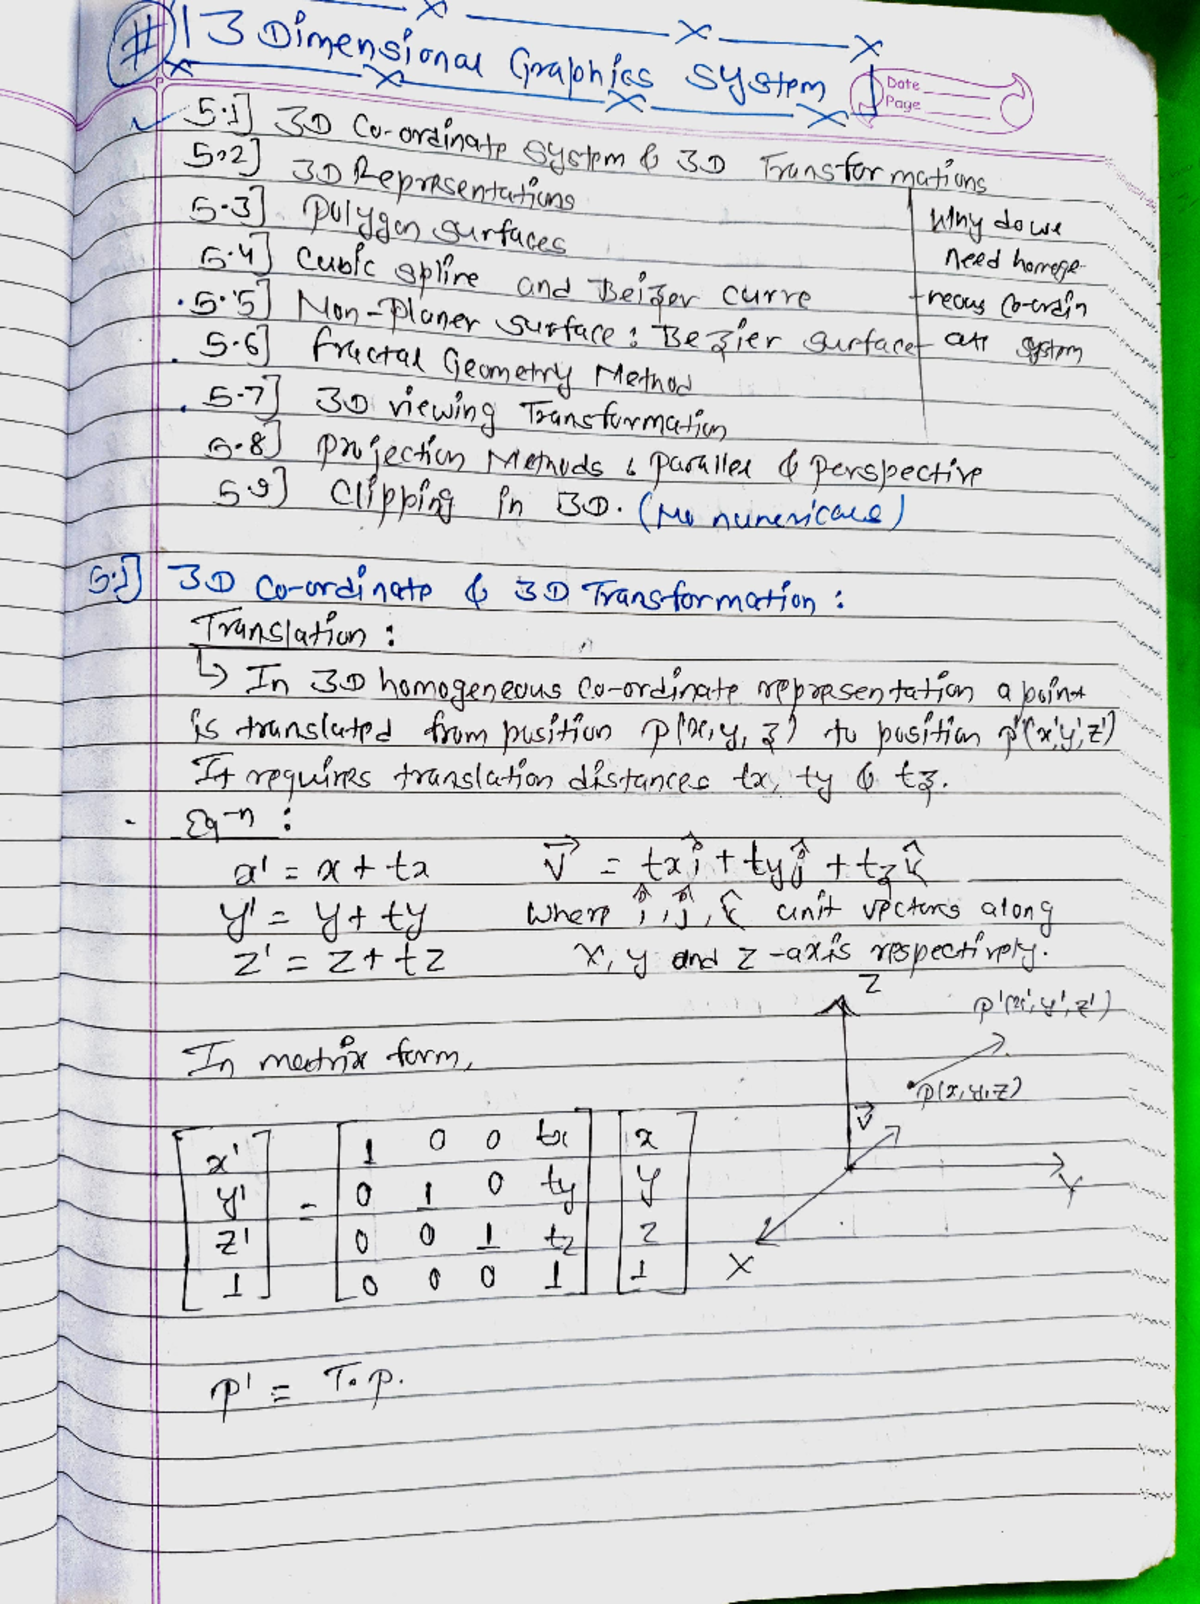 # 3 Dimensional Graphics System
Date
Page
5.1] 3D Co-ordinate system & 3D Transformations
5.2] 3D Representations
5.3] Polygon surfaces
5.4] Cubic spline and Beizer curve
5.5] Non-Planer surface : Bezier surface
5.6] Fractal Geometry Method
5.7] 3D viewing Transformation
5.8] Projection Methods : Parallel & perspective
5.9] Clipping in 3D. (No numericals)
Why do we
need homoge-
neous co-ordin
ate system
5.1] 3D Co-ordinate & 3D Transformation :
Translation :
↳ In 3D homogeneous co-ordinate representation a point
is translated from position P(x, y, z) to position P'(x',y',z')
It requires translation distances tx, ty & tz.
Eq-n :
x' = x + tx
y' = y + ty
z' = z + tz
V⃗ = tx î + ty ĵ + tz k̂
where î, ĵ, k̂ unit vectors along
x, y and z-axis respectively.
In matrix form,
[x'] = [1 0 0 tx] [x]
[y'] [0 1 0 ty] [y]
[z'] [0 0 1 tz] [z]
[1] [0 0 0 1] [1]
Z
P'(x', y', z')
P(x, y, z)
V⃗
Y
X
P' = T. P.